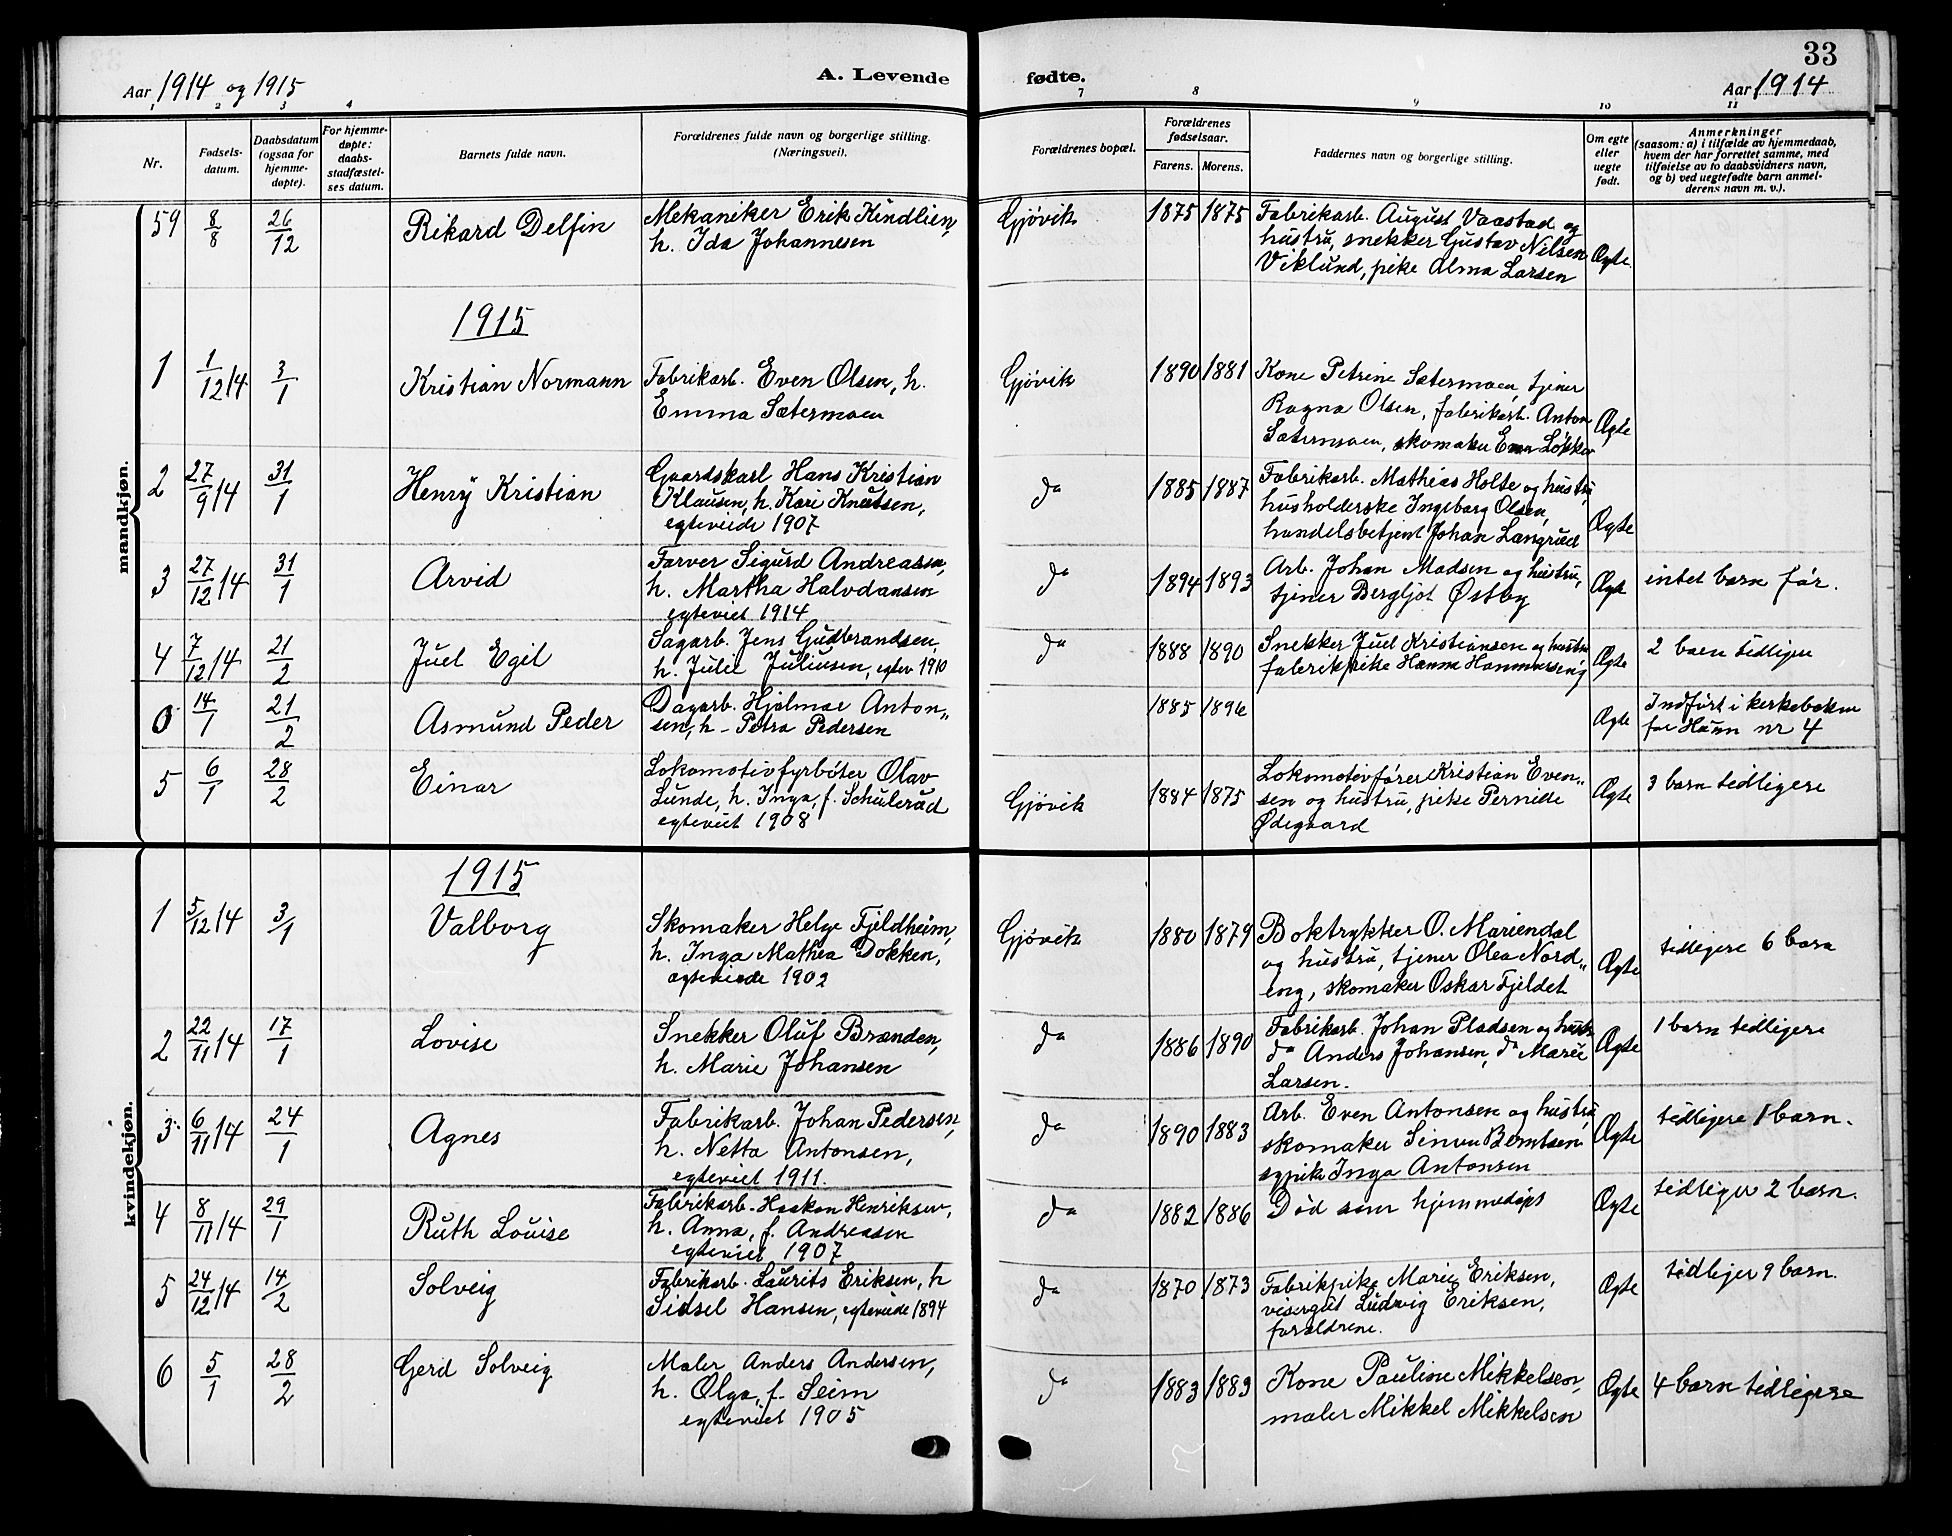 33
Aar 1914 og 1915
A. Levende fødte.
Aar 1914
1 2 3 4 7 8 9 10 11
Nr.
Fødsels-
datum.
Daabsdatum
(ogsaa for
hjemme-
døpte).
For hjemme-
døpte:
daabs-
stadfæstel-
ses datum.
Barnets fulde navn.
Forældrenes fulde navn og borgerlige stilling.
(Næringsvei).
Forældrenes bopæl.
Forældrenes
fødselsaar.
Farens. Morens.
Faddernes navn og borgerlige stilling.
Om egte
eller
uegte
født.
Anmerkninger
(saasom: a) i tilfælde av hjemmedaab,
hvem der har forrettet samme, med
tilføielse av to daabsvidners navn,
og b) ved uegtefødte barn anmel-
derens navn m. v.).
mandkjøn.
59 8/8 26/12 Rikard Delfin
Mekaniker Erik Kindlien,
h. Ida Johannesen
Gjøvik 1875 1875
Fabrikarb. August Vaastad og
hustru, snekker Gustav Nilsen
Viklund, pike Alma Larsen
Ægte.
1915
1 1/12 14 3/1 Kristian Normann
Fabrikarb. Even Olsen, h.
Emma Sætermoen
Gjøvik 1890 1881
Kone Petrine Sætermoen, tjener
Ragna Olsen, fabrikarb. Anton
Sætermoen, skomaker Even Løkken
Ægte
2 27/9 14 31/1 Henry Kristian
Gaardskarl Hans Kristian
Klausen, h. Kari Knutsen,
egteviede 1907
do 1885 1887
Fabrikarb. Mathias Holte og hustru,
husholderske Ingeborg Olsen,
handelsbetjent Johan Langrud
Ægte
3 27/12 14 31/1 Arvid
Farver Sigurd Andreassen,
h. Martha Halvdansen
egteviet 1914
do 1894 1893
Arb. Johan Madsen og hustru,
tjener Bergljot Østby
Ægte
intet barn før.
4 7/12 14 21/2 Juel Egil
Sagarb. Jens Gudbrandsen,
h. Julie Juliusen, egtev 1910
do 1888 1890
Snekker Juel Kristiansen og hustru
fabrikpike Hanna
Ægte
2 barn tidligere
0 14/1 21/2 Asmund Peder
Dagarb. Hjalmar Anton„
sen, h - Petra Pedersen
1885 1896
Ægte
Indført i kirkeboken
for Hunn nr 4
5 6/1 28/2 Einar
Lokomotivfyrbøter Olav
Lunde, h. Inga, f. Schulerud
egteviet 1908
Gjøvik 1884 1875
Lokomotivfører Kristian Even„
sen og hustru, pike Pernille
Ødegaard
Ægte
3 barn tidligere
kvindekjøn.
1915
1 5/12 14 3/1 Valborg
Skomaker Helge Fjeldheim,
h. Inga Mathea Dokken,
egteviede 1902
Gjøvik 1880 1879
Boktrykker O. Mariendal
og hustru, tjener Olea Nord„
eng, skomaker Oskar Fjeldet
Ægte
tidligere 6 barn
2 22/11 14 17/1 Lovise
Snekker Oluf Brænden,
h. Marie Johansen
do 1886 1890
Fabrikarb. Johan Pladsen og hustru
do Anders Johansen, do Marie
Larsen.
Ægte
1 barn tidligere
3 6/11 14 24/1 Agnes
Fabrikarb. Johan Pedersen,
h. Netta Antonsen,
egteviet 1911.
do 1890 1883
Arb. Even Antonsen og hustru,
skomaker Simen Berntsen
sypike Inga Antonsen
Ægte
tidligere 1 barn.
4 8/11 14 29/1 Ruth Louise
Fabrikarb. Haakon Henriksen,
h. Anna, f. Andreasen
egteviet 1907
do 1882 1886
Død som hjemmedøpt
Ægte
tidliger 2 barn.
5 24/12 14 14/2 Solveig
Fabrikarb. Laurits Eriksen, h
Sidsel Hansen, egteviede 1894
do 1870 1873
Fabrikpike Marie Eriksen,
visergut Ludvig Eriksen,
forældrene.
Ægte
tidliger 9 barn.
6 5/1 28/2 Gerd Solveig
Maler Anders Andersen,
h. Olga, f. Seim
egteviet 1905
do 1883 1883
Kone Pauline Mikkelsen,
maler Mikkel Mikkelsen
Ægte
4 barn tidligere